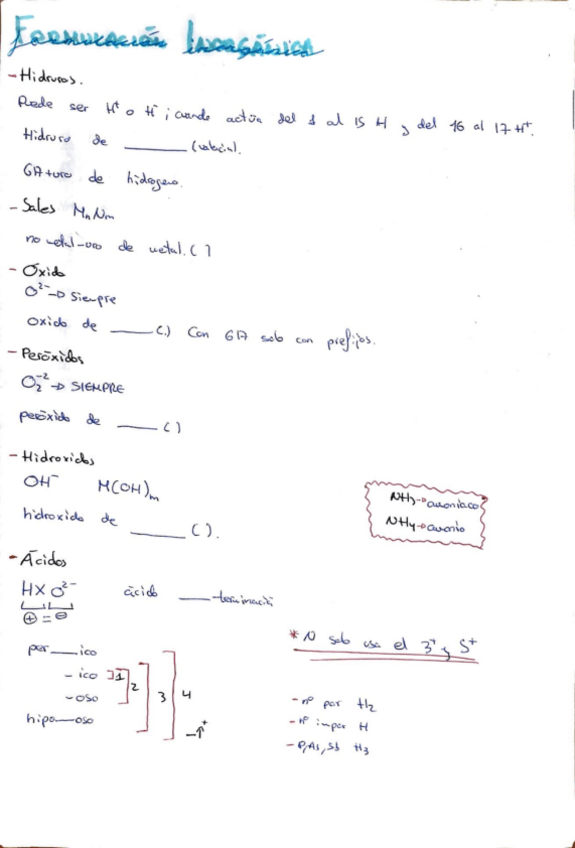 Formulación Inorgánica
- Hidruros.
Puede ser H⁺ o H⁻; cuando actúa del 1 al 15 H⁻ y del 16 al 17 H⁺.
Hidruro de ______ (valencia).
6A+uro de hidrógeno.
- Sales MₙNₘ
no metal-uro de metal. ( )
- Óxido
O²⁻ → Siempre
oxido de ____ (.) Con 6A solo con prefijos.
- Peróxidos
O₂⁻² → SIEMPRE
peróxido de ____ ( )
- Hidroxidos
OH⁻ M(OH)ₘ
hidroxido de ______ ( ).
NH₃ → amoniaco
NH₄ → amonio
- Ácidos
HXO²⁻ ácido ____-terminación
⊕ = ⊖
per___ico
- ico ]1
- oso ]2
hipo___oso ]3 ]4
* N solo usa el 3⁺ y 5⁺
- nº par H₂
- nº impar H
- P, As, Sb H₃